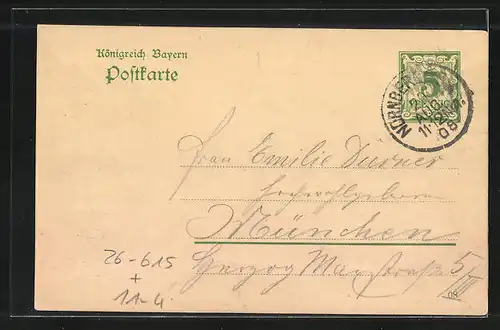 Königreich Bayern
Postkarte
5
NÜRNBERG
AUG
08
Frau Emilie Durner
Hochwohlgeboren
München
Herzog Max Straße 5/III
26-615
+
11-4